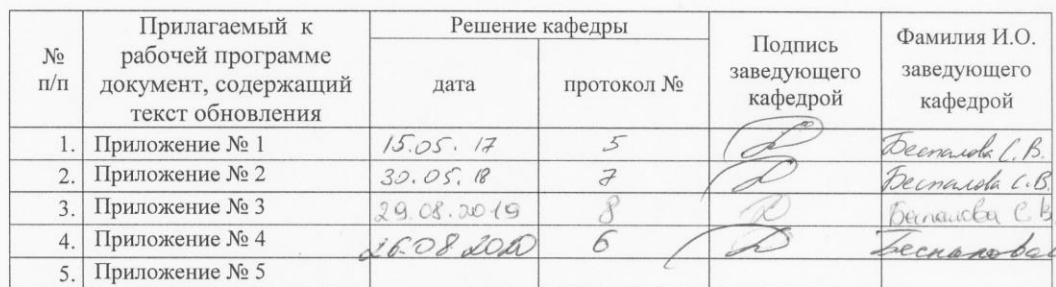 № п/п | Прилагаемый к рабочей программе документ, содержащий текст обновления | Решение кафедры | Подпись заведующего кафедрой | Фамилия И.О. заведующего кафедрой
дата | протокол №
1. | Приложение № 1 | 15.05.17 | 5 | Беспалова С.В.
2. | Приложение № 2 | 30.05.18 | 7 | Беспалова С.В.
3. | Приложение № 3 | 29.08.2019 | 8 | Беспалова С В
4. | Приложение № 4 | 26.08.2020 | 6 | Беспалова
5. | Приложение № 5